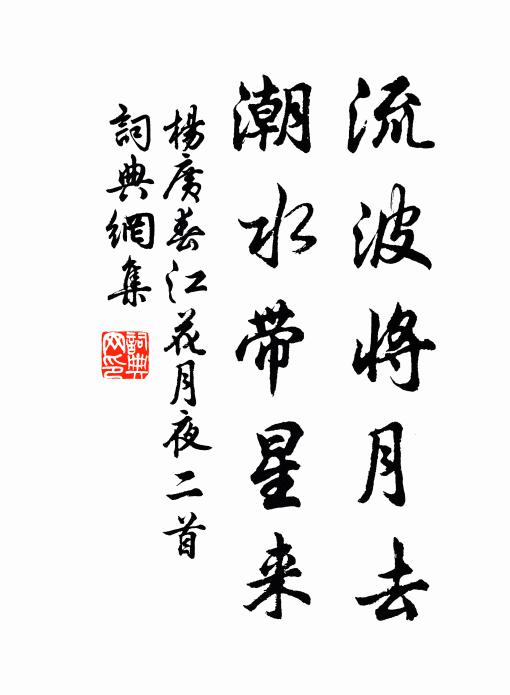 流波将月去
潮水带星来
楊廣春江花月夜二首
詞典網集
詞典網印